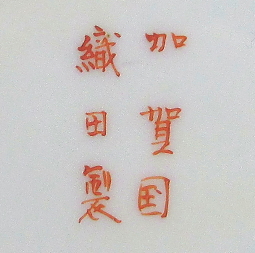 加賀国
織田製